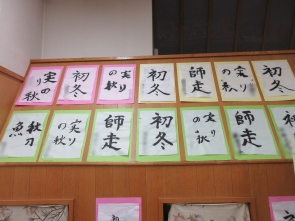 実り
の秋
初冬
実り
の秋
初冬
師走
実り
の秋
初冬
秋刀
魚
実り
の秋
師走
初冬
実り
の秋
師走
初冬